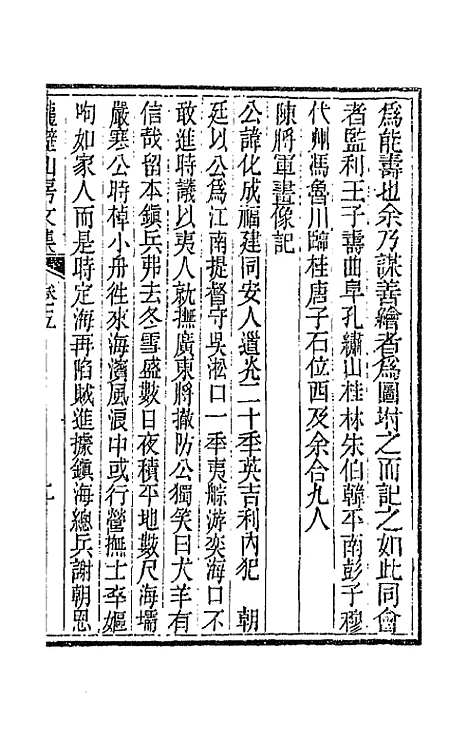 爲能壽也余乃謀善繪者爲圖坿之而記之如此同會
者監利王子壽曲阜孔繡山桂林朱伯韓平南彭子穆
代州馮魯川臨桂唐子石位西及余合九人
陳將軍畫像記
公諱化成福建同安人道光二十年英吉利內犯　朝
廷以公爲江南提督守吳淞口一年夷艅游奕海口不
敢進時議以夷人就撫廣東將撤防公獨笑曰犬羊有
信哉留本鎭兵弗去冬雪盛數日夜積平地數尺海壖
嚴寒公時棹小舟徃來海濤風浪中或行營撫士卒嫗
呴如家人而是時定海再陷賊進據鎭海總兵謝朝恩
龍壁山房文集　卷五　九